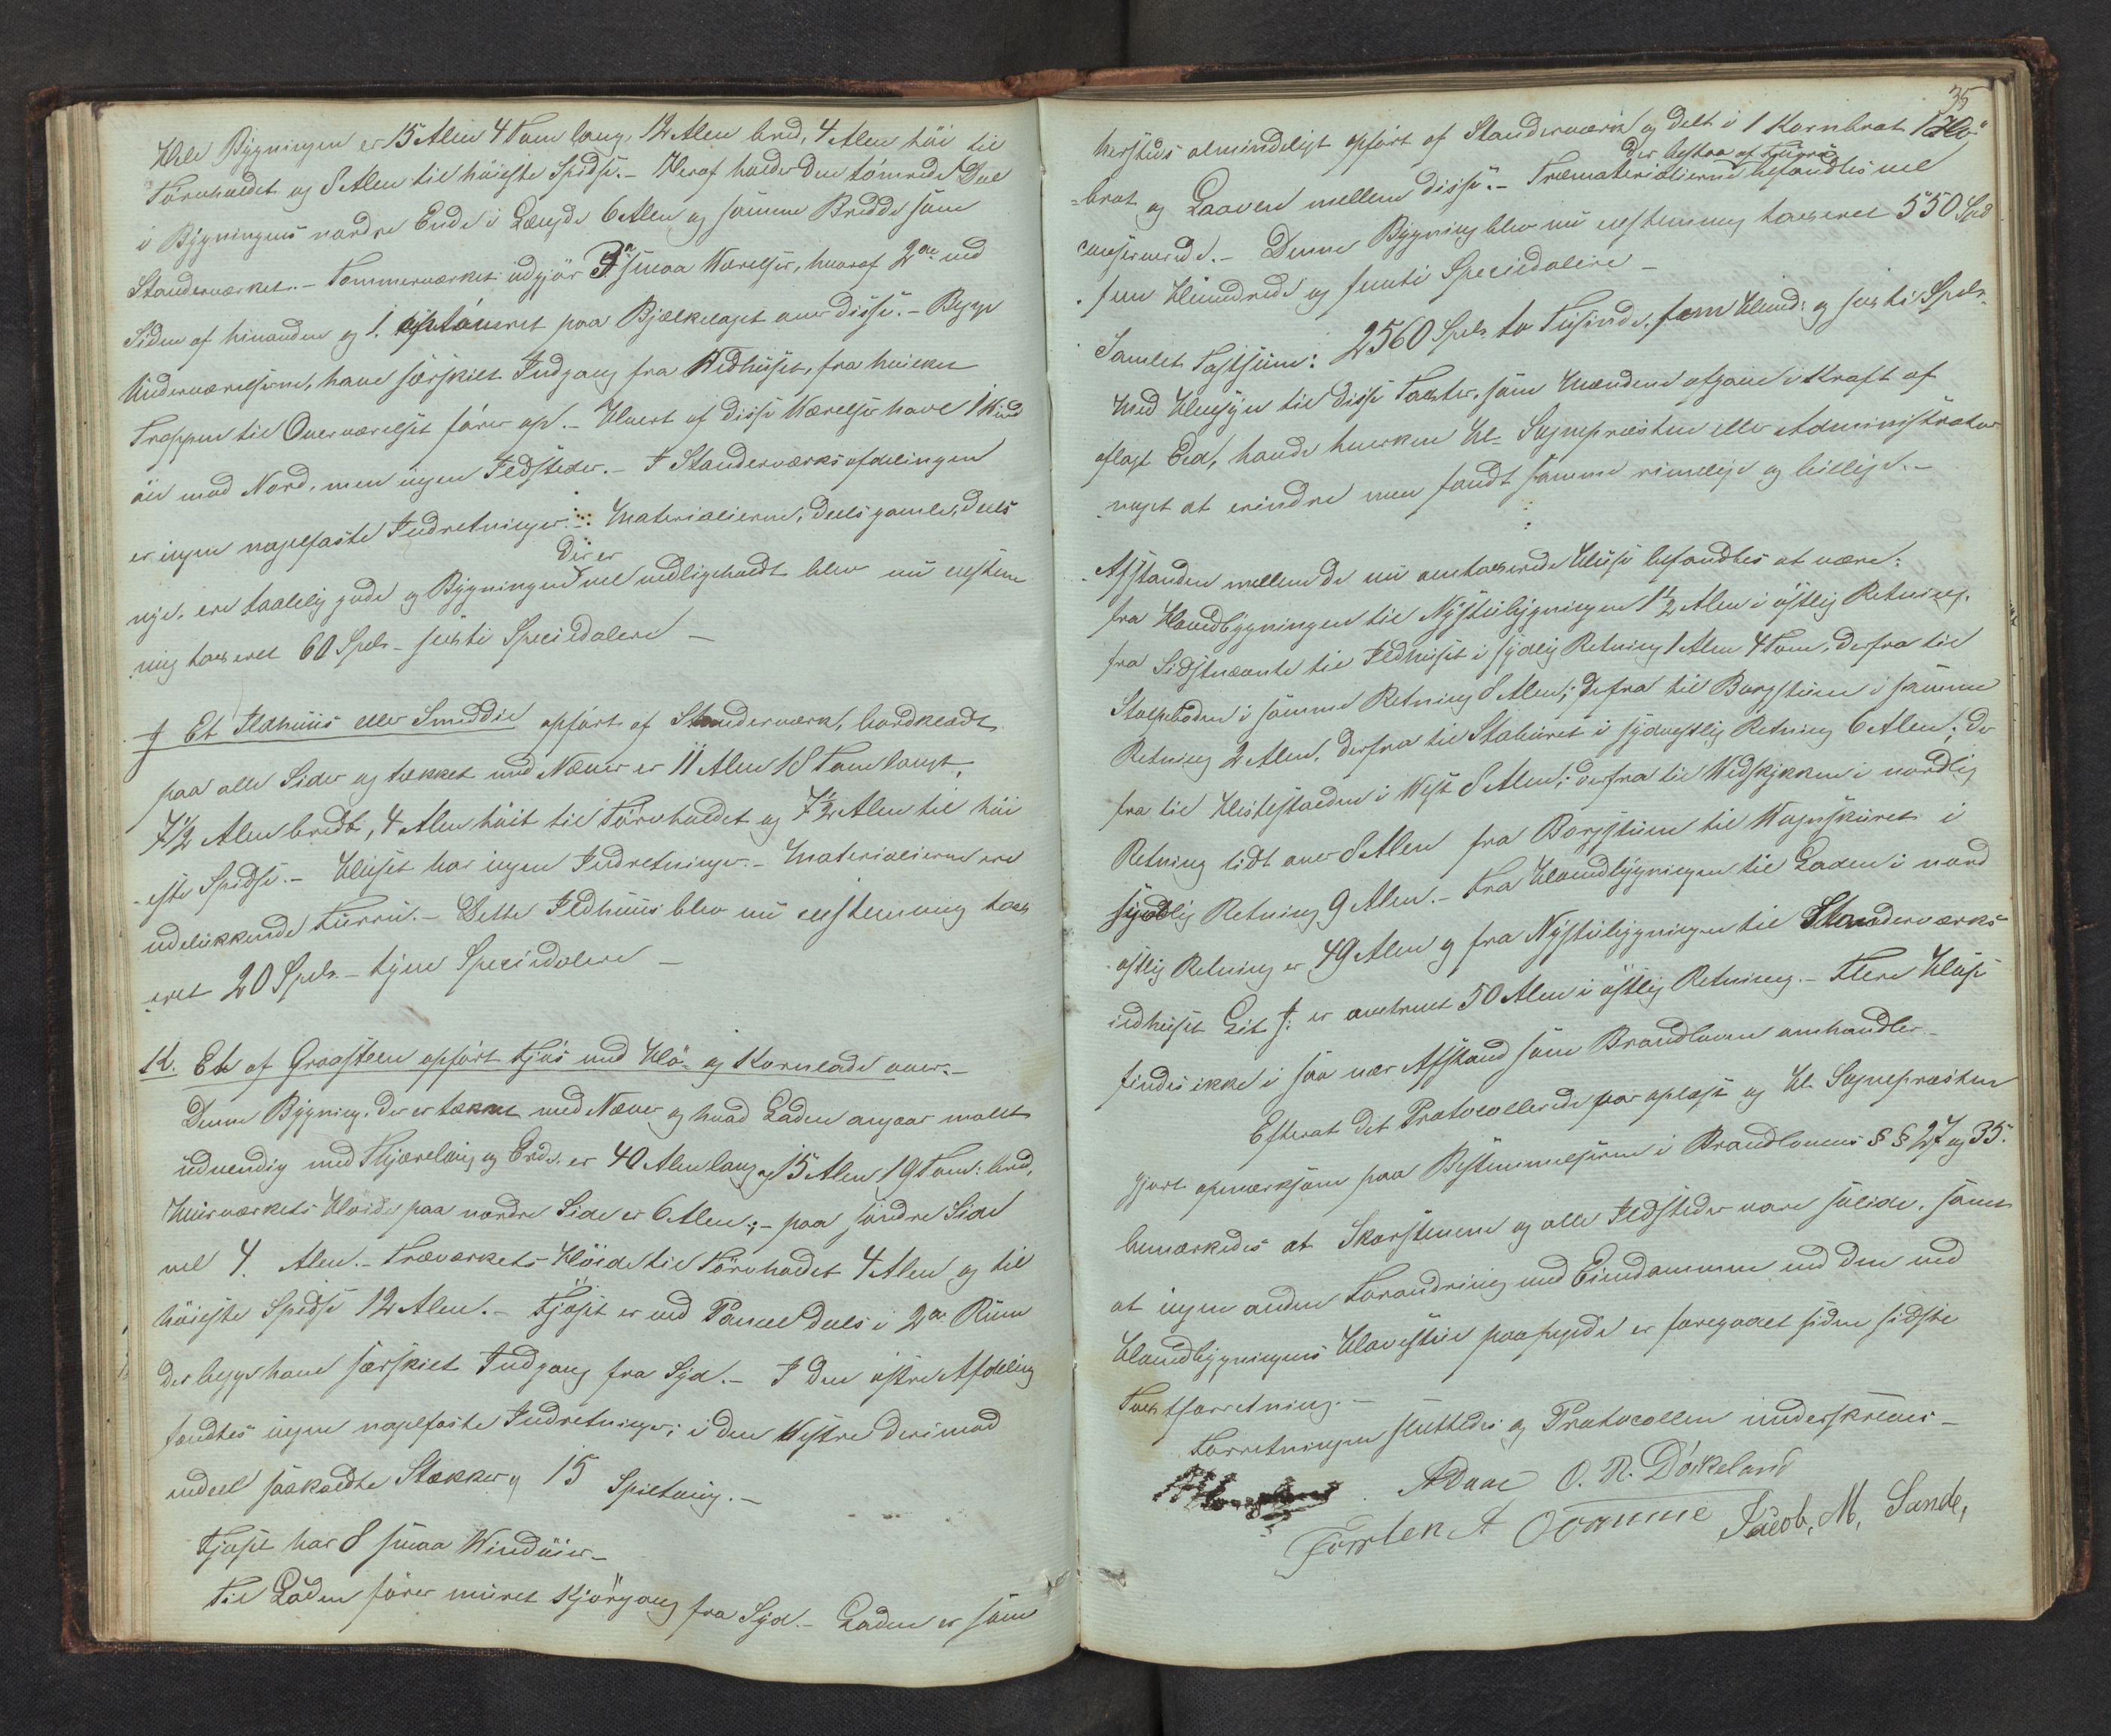 Hele Bygningen er 15 Alen 4 Tom lang, 12 Alen bred, 4 Alen höi til
Törvholdet og 8 Alen til höieste Spidse. - Heraf holder den tömrede Deel
i Bygningens nordre Ende i Længde 6 Alen og samme Bredde som
Standerværket. - Tømmerværket udgjör 3 smaa Værelser, hvoraf 2de ved
Siden af hinanden og 1 paa Bjælkelaget over disse. - Begge
Underværelserne, have særskilt Indgang fra Vedhuset, fra hvilket
Trappen til Overværelset förer op. - Hvert af disse Værelser have 1 Vind
öie mod Nord, men ingen Ildsteder. - I Standerværksafdelingen
er ingen nagelfaste Indretninger. - Materialierne, deels gamle, deels
nye, ere taalelig gode og Bygningen der er vel vedligeholdt blev nu eenstem
mig taxeret 60 Spdlr - sexti Speciedalere -
J Et Ildhuus eller Smeddie opfört af Standerværk, bordklædt
paa alle Sider og tækket med Næver er 11 Alen 18 Tom langt,
7 1/2 Alen bredt, 4 Alen höit til Törvholdet og 7 1/2 Alen til höi
este Spidse. - Huset har ingen Indretninger. - Materialierne ere
udelukkende Furru. - Dette Ildhuus blev nu eenstemmig tax
eret 20 Spdlr. - tyve Speciedalere -
K. Et af Graasteen opfört Fjös med Hö- og Kornlade over. -
Denne Bygning, der er tækket med Næver og hvad Laden angaar malet
udvendig med Kjæreling og Erde, er 40 Alen lang og 15 Alen 19 Tom: bred,
Muurværkets Höide paa nordre Side er 6 Alen; - paa söndre Side
vel 4. Alen. - Træværkets Höide til Törvholdet 4 Alen og til
höieste Spidse 12 Alen. - Fjöset er ved Panel deelt i 2de Rum
der begge have særskilt Indgang fra Syd. - I den östre Afdeling
fandtes ingen nagelfaste Indretninger; i den Vestre derimod
endeel saakaldte Stækker og 15 Spiltaug. -
Fjöset har 8 smaa Vinduier -
Til Laden förer muret Kjörgang fra Syd. - Laden er som
35
hersteds almindeligt opfört af Standerværk og delt i 1 Kornbrot, 1 Hö-
brot og Laaven mellem disse. - Træmaterialierne der bestaa af Furru befandtes vel
conserverede. - Denne Bygning blev nu eenstemmig taxeret 550 Spd
fem Hundrede og femti Speciedalere -
Samlet Taxtsum: 2560 Spdlr. to Tusinde, fem Hund: og sexti Spdlr.
Med Hensyn til disse Taxter, som Mændene afgave i Kraft af
aflagt Eed, havde hverken Hr. Sognepræsten eller Administrator
noget at erindre men fandt samme rimelige og billige. -
Afstanden mellem de nu omtaxerede Huse befandtes at være:
fra Hovedbygningen til Nystuebygningen 1 1/2 Alen i östlig Retning,
fra Sidstnævnte til Ildhuset i sydlig Retning 1 Alen 4 Tom, derfra til
Stolpeboden i samme Retning 8 Alen; derfra til Borgstuen i samme
Retning 2 Alen, derfra til Staburet i sydvestlig Retning 6 Alen; der
fra til Hestestalden i Vest 8 Alen; derfra til Vedskjykken i nordlig
Retning lidt over 8 Alen fra Borgstuen til Vognskuret i
sydlig Retning 9 Alen. - Fra Hovedbygningen til Laden i nord
östlig Retning er 49 Alen og fra Nystuebygningen til Standerværks-
ildhuset Lit J: er omtrent 50 Alen i östlig Retning. - Flere Huse
findes ikke i saa nær Afstand som Brandloven omhandler. -
Efterat det Protocollerede var oplæst og Hr. Sognepræsten
gjort opmærksom paa Bestemmelserne i Brandlovens §§ 27 og 35.
bemærkedes at Skorstenene og alle Ildsteder vare solide, samt
at ingen anden Forandring med Eiendommen end den ved
Hovedbygningens Havestue paapegede er foregaaet siden sidste
Taxtforretning. -
Forretningen sluttedes og Protocollen underskreves -
ADaae O. N. Dökeland
Torsten A Jacob, M, Sande,